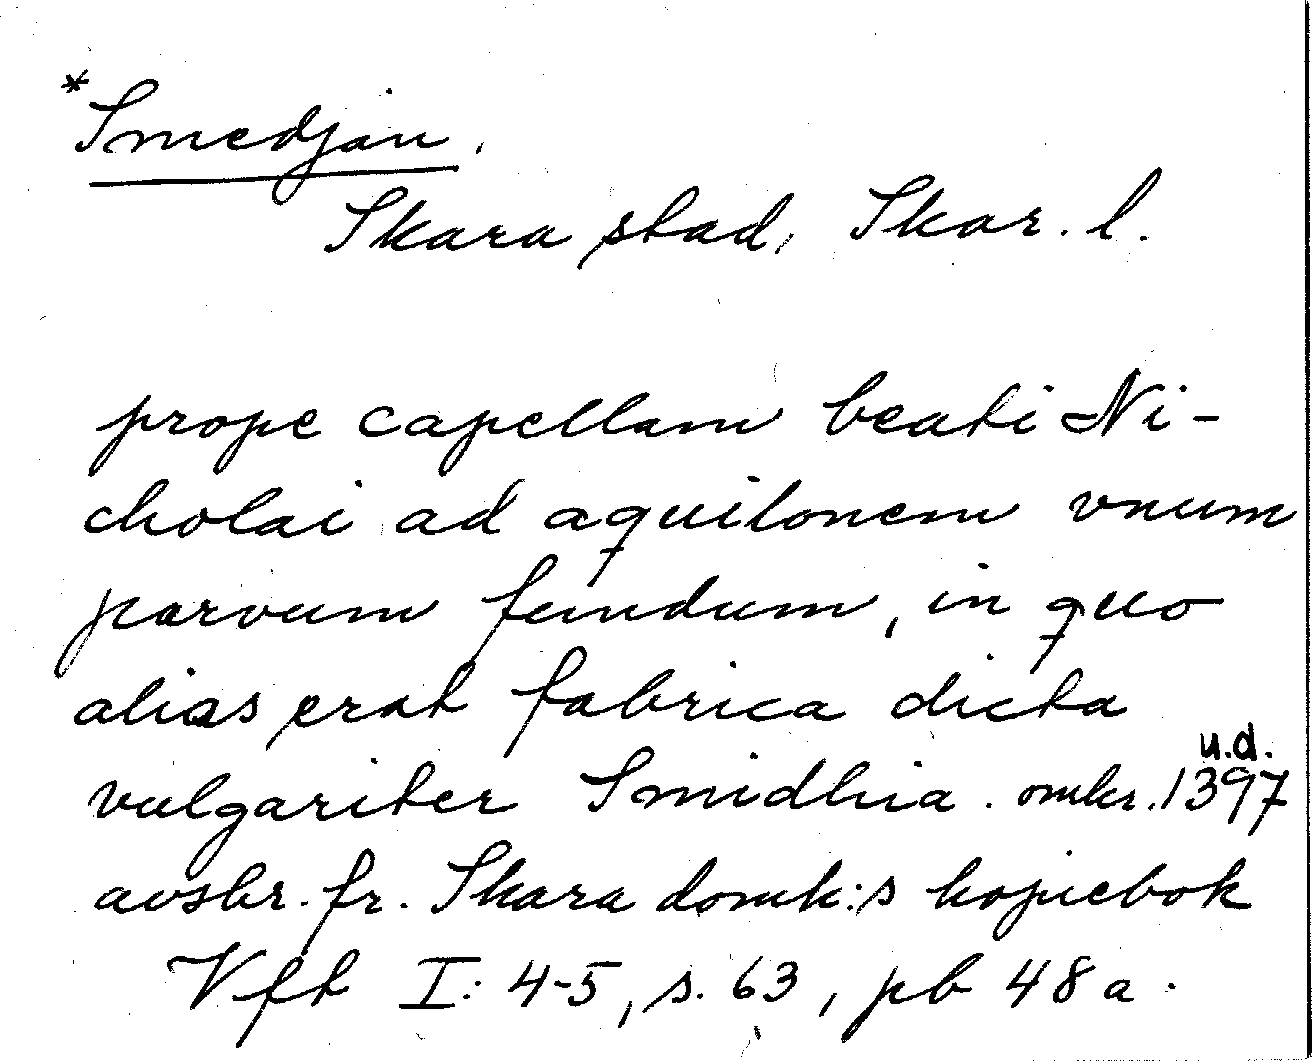 *Smedjan.
Skara stad, Skar. l.
prope capellam beati Ni-
cholai ad aquilonem vnum
parvum fundum, in quo
alias erat fabrica dicta
vulgariter Smidhia. omkr. 1397 u.d.
avskr. fr. Skara domk:s kopiebok
Vft I: 4-5, s. 63, pb 48 a.